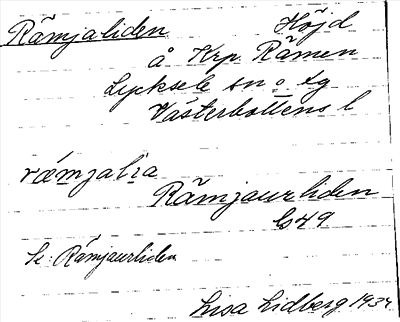 Råmjaliden Höjd
å Krp. Råmen
Lycksele sn o. tg
Västerbottens l
rǽmjalia
Råmjaurliden
G49
Se: Råmjaurliden
Lisa Lidberg 1934.